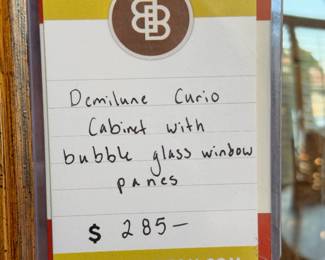 B B
Demilune Curio
Cabinet with
bubble glass window
panes
$ 285-